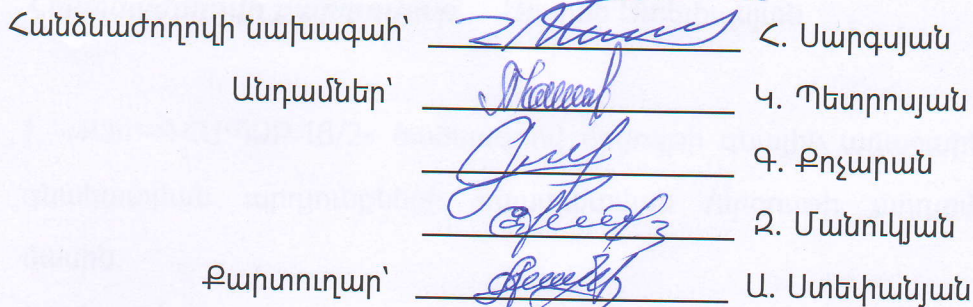 Հանձնաժողովի նախագահ՝ Հ. Սարգսյան
Անդամներ՝ Կ. Պետրոսյան
Գ. Քոչարան
Զ. Մանուկյան
Քարտուղար՝ Ա. Ստեփանյան